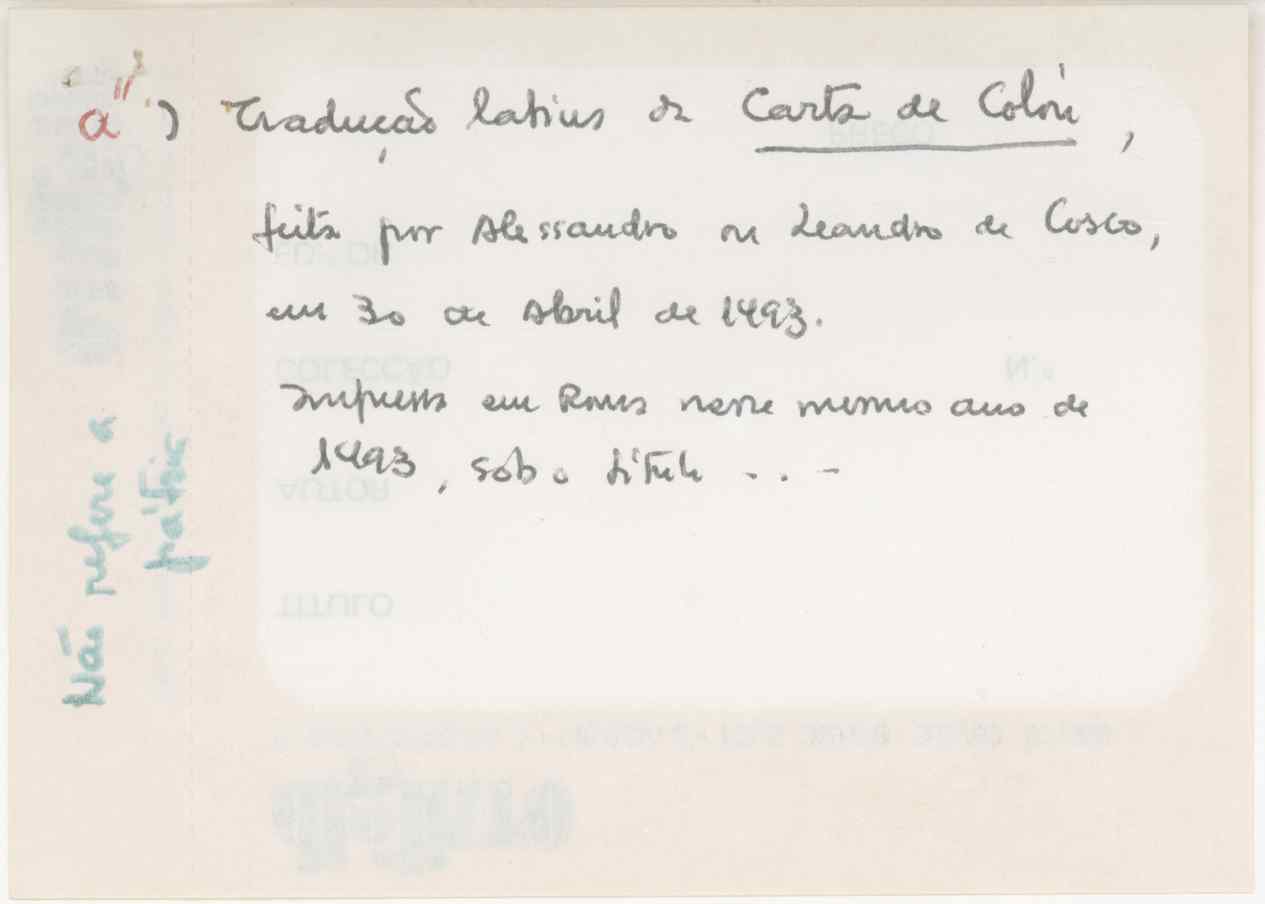 a'') Tradução latina da Carta de Colón,
feita por Alessandro ou Leandro de Cosco,
em 30 de Abril de 1493.
Impressa em Roma nesse mesmo ano de
1493, sob o título ...
Não refere a
pátria
PREÇO
COLECÇÃO N.º
AUTOR
TÍTULO